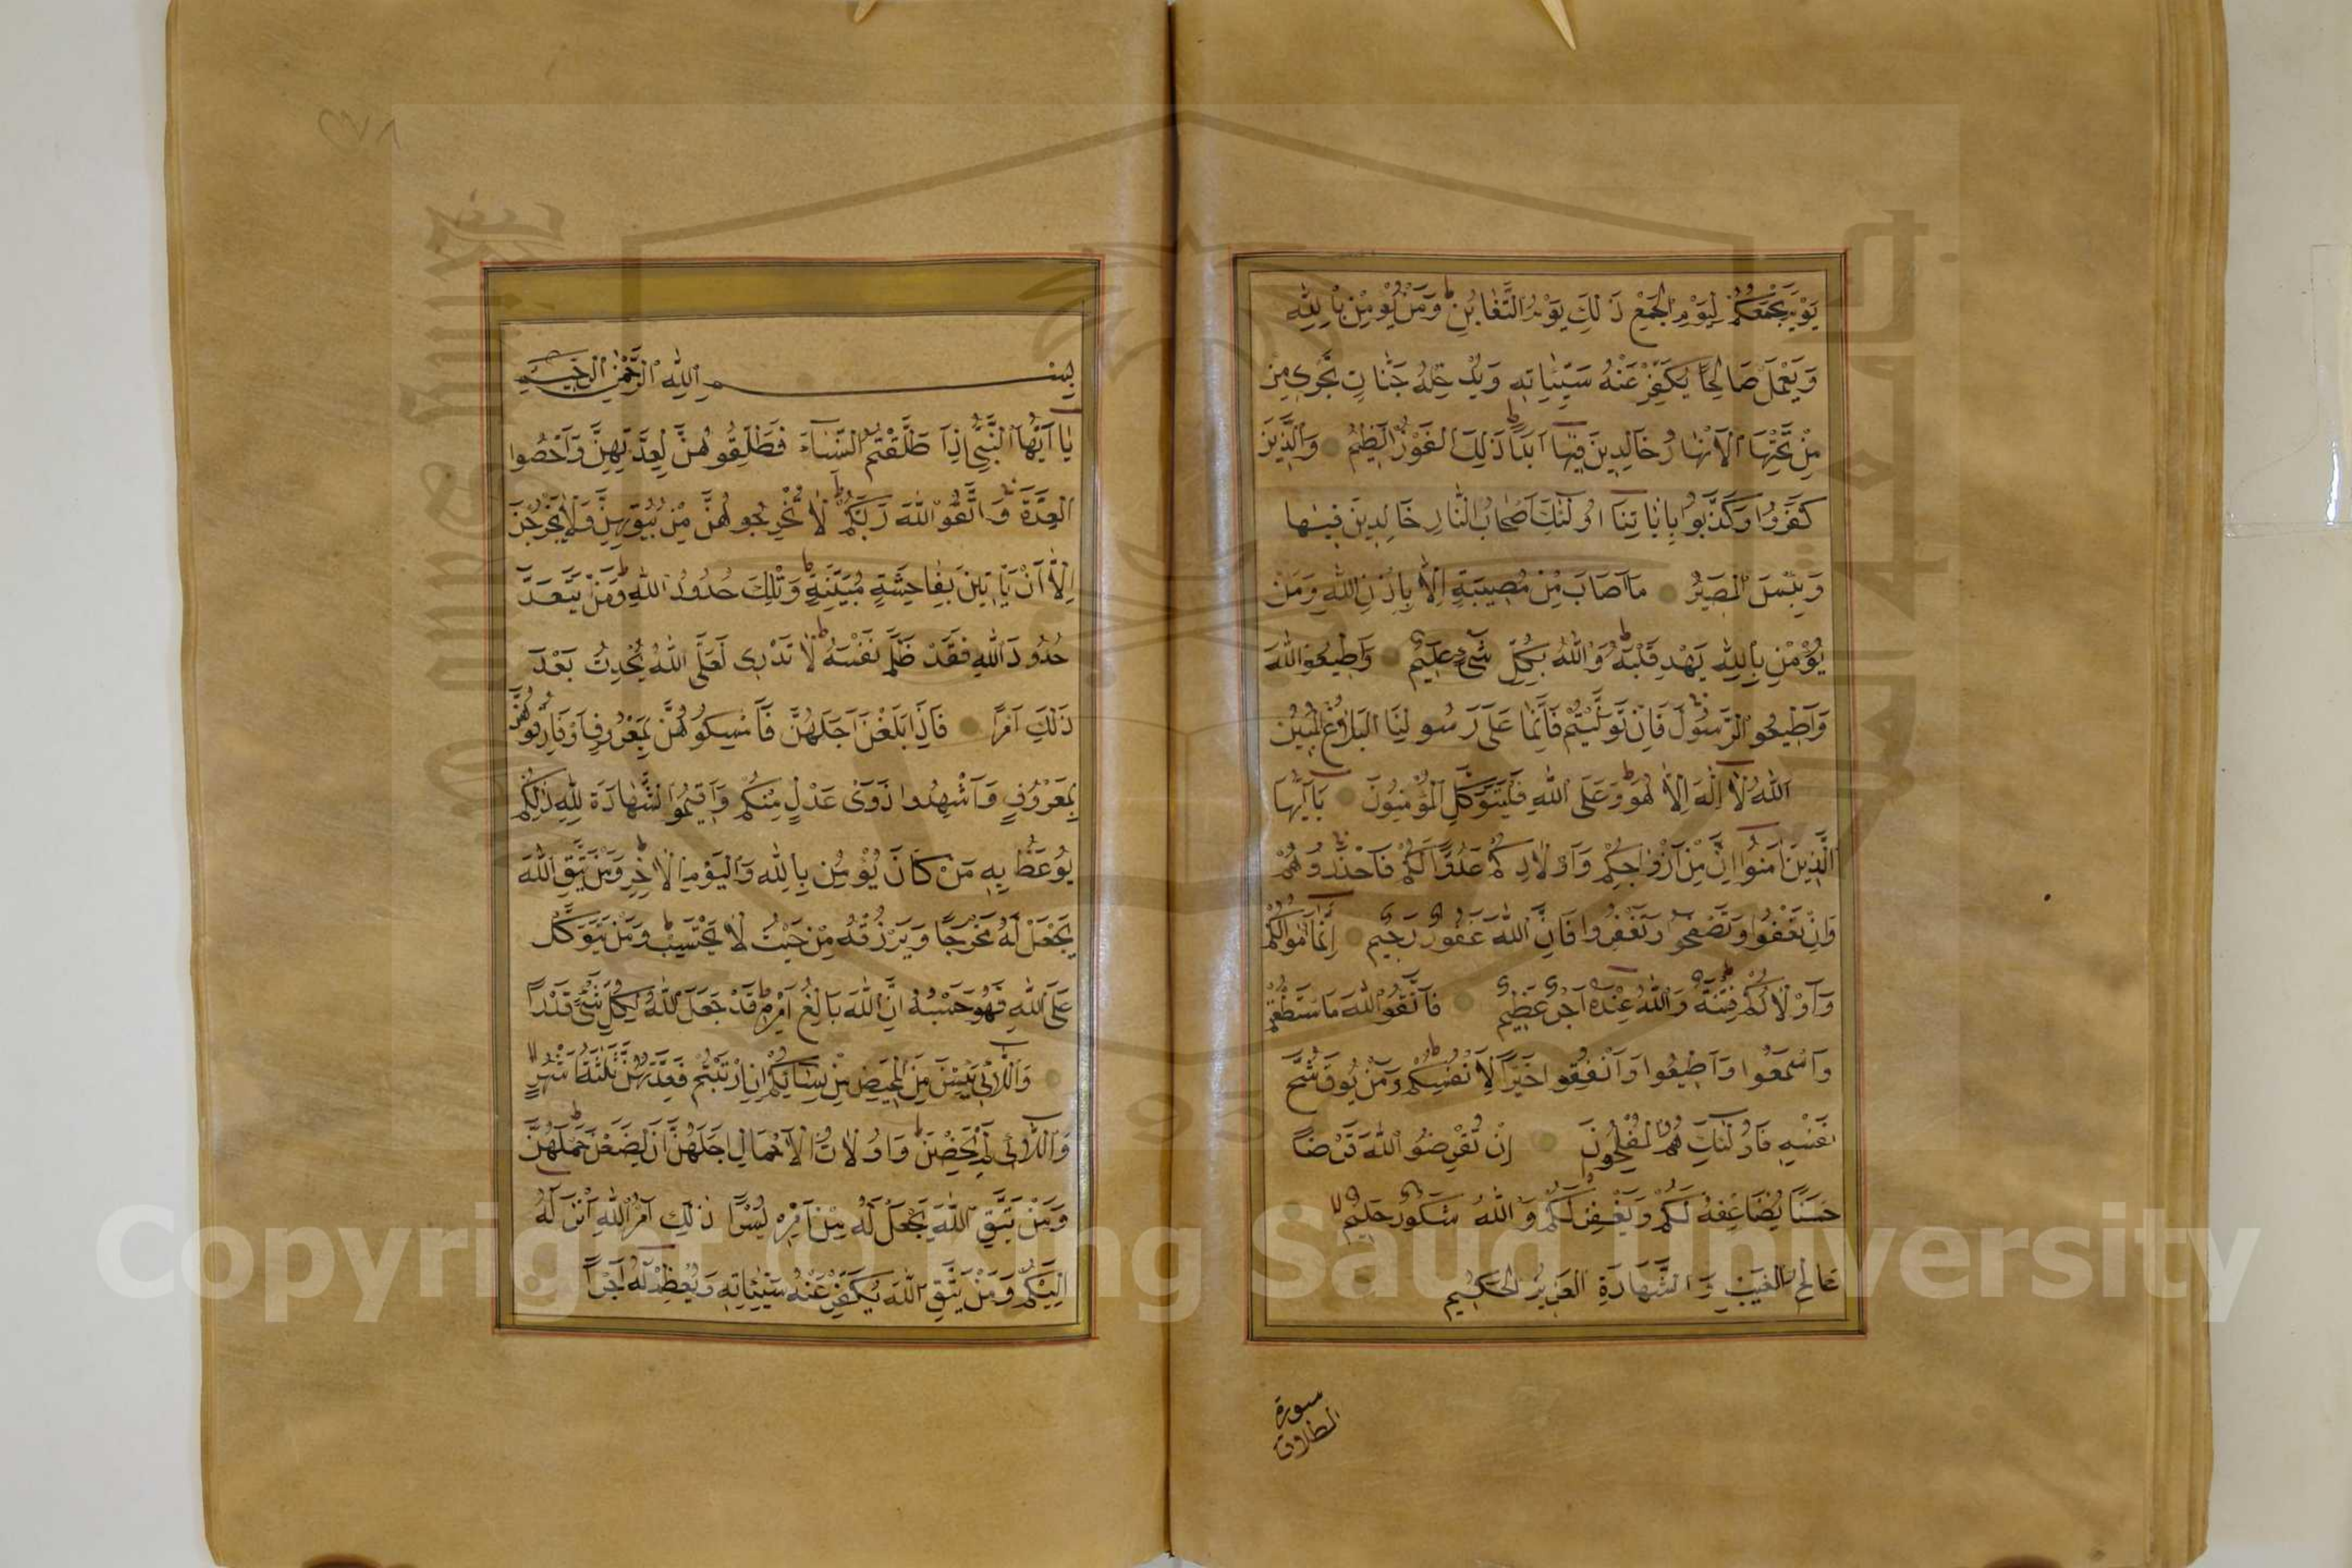 يَوْمَ يَجْمَعُكُمْ لِيَوْمِ الْجَمْعِ ذَلِكَ يَوْمُ التَّغَابُنِ وَمَنْ يُؤْمِنْ بِاللهِ
وَيَعْمَلْ صَالِحًا يُكَفِّرْ عَنْهُ سَيِّئَاتِهِ وَيُدْخِلْهُ جَنَّاتٍ تَجْرِى مِنْ
مِنْ تَحْتِهَا الْأَنْهَارُ خَالِدِينَ فِيهَا أَبَدًا ذَلِكَ الْفَوْزُ الْعَظِيمُ وَالَّذِينَ
كَفَرُوا وَكَذَّبُوا بِآيَاتِنَا أُولَئِكَ أَصْحَابُ النَّارِ خَالِدِينَ فِيهَا
وَبِئْسَ الْمَصِيرُ مَا أَصَابَ مِنْ مُصِيبَةٍ إِلَّا بِإِذْنِ اللهِ وَمَنْ
يُؤْمِنْ بِاللهِ يَهْدِ قَلْبَهُ وَاللهُ بِكُلِّ شَىْءٍ عَلِيمٌ وَأَطِيعُوا اللهَ
وَأَطِيعُوا الرَّسُولَ فَإِنْ تَوَلَّيْتُمْ فَإِنَّمَا عَلَى رَسُولِنَا الْبَلَاغُ الْمُبِينُ
اللهُ لَا إِلَهَ إِلَّا هُوَ وَعَلَى اللهِ فَلْيَتَوَكَّلِ الْمُؤْمِنُونَ يَا أَيُّهَا
الَّذِينَ آمَنُوا إِنَّ مِنْ أَزْوَاجِكُمْ وَأَوْلَادِكُمْ عَدُوًّا لَكُمْ فَاحْذَرُوهُمْ
وَإِنْ تَعْفُوا وَتَصْفَحُوا وَتَغْفِرُوا فَإِنَّ اللهَ غَفُورٌ رَحِيمٌ إِنَّمَا أَمْوَالُكُمْ
وَأَوْلَادُكُمْ فِتْنَةٌ وَاللهُ عِنْدَهُ أَجْرٌ عَظِيمٌ فَاتَّقُوا اللهَ مَا اسْتَطَعْتُمْ
وَاسْمَعُوا وَأَطِيعُوا وَأَنْفِقُوا خَيْرًا لِأَنْفُسِكُمْ وَمَنْ يُوقَ شُحَّ
نَفْسِهِ فَأُولَئِكَ هُمُ الْمُفْلِحُونَ إِنْ تُقْرِضُوا اللهَ قَرْضًا
حَسَنًا يُضَاعِفْهُ لَكُمْ وَيَغْفِرْ لَكُمْ وَاللهُ شَكُورٌ حَلِيمٌ
عَالِمُ الْغَيْبِ وَالشَّهَادَةِ الْعَزِيزُ الْحَكِيمُ
سورة
الطلاق
٢٧٨
بِسْمِ اللهِ الرَّحْمَنِ الرَّحِيمِ
يَا أَيُّهَا النَّبِىُّ إِذَا طَلَّقْتُمُ النِّسَاءَ فَطَلِّقُوهُنَّ لِعِدَّتِهِنَّ وَأَحْصُوا
الْعِدَّةَ وَاتَّقُوا اللهَ رَبَّكُمْ لَا تُخْرِجُوهُنَّ مِنْ بُيُوتِهِنَّ وَلَا يَخْرُجْنَ
إِلَّا أَنْ يَأْتِينَ بِفَاحِشَةٍ مُبَيِّنَةٍ وَتِلْكَ حُدُودُ اللهِ وَمَنْ يَتَعَدَّ
حُدُودَ اللهِ فَقَدْ ظَلَمَ نَفْسَهُ لَا تَدْرِى لَعَلَّ اللهَ يُحْدِثُ بَعْدَ
ذَلِكَ أَمْرًا فَإِذَا بَلَغْنَ أَجَلَهُنَّ فَأَمْسِكُوهُنَّ بِمَعْرُوفٍ أَوْ فَارِقُوهُنَّ
بِمَعْرُوفٍ وَأَشْهِدُوا ذَوَىْ عَدْلٍ مِنْكُمْ وَأَقِيمُوا الشَّهَادَةَ لِلَّهِ ذَلِكُمْ
يُوعَظُ بِهِ مَنْ كَانَ يُؤْمِنُ بِاللهِ وَالْيَوْمِ الْآخِرِ وَمَنْ يَتَّقِ اللهَ
يَجْعَلْ لَهُ مَخْرَجًا وَيَرْزُقْهُ مِنْ حَيْثُ لَا يَحْتَسِبُ وَمَنْ يَتَوَكَّلْ
عَلَى اللهِ فَهُوَ حَسْبُهُ إِنَّ اللهَ بَالِغُ أَمْرِهِ قَدْ جَعَلَ اللهُ لِكُلِّ شَىْءٍ قَدْرًا
وَاللَّائِى يَئِسْنَ مِنَ الْمَحِيضِ مِنْ نِسَائِكُمْ إِنِ ارْتَبْتُمْ فَعِدَّتُهُنَّ ثَلَثَةُ أَشْهُرٍ
وَاللَّائِى لَمْ يَحِضْنَ وَأُولَاتُ الْأَحْمَالِ أَجَلُهُنَّ أَنْ يَضَعْنَ حَمْلَهُنَّ
وَمَنْ يَتَّقِ اللهَ يَجْعَلْ لَهُ مِنْ أَمْرِهِ يُسْرًا ذَلِكَ أَمْرُ اللهِ أَنْزَلَهُ
إِلَيْكُمْ وَمَنْ يَتَّقِ اللهَ يُكَفِّرْ عَنْهُ سَيِّئَاتِهِ وَيُعْظِمْ لَهُ أَجْرًا
Copyright © King Saud University